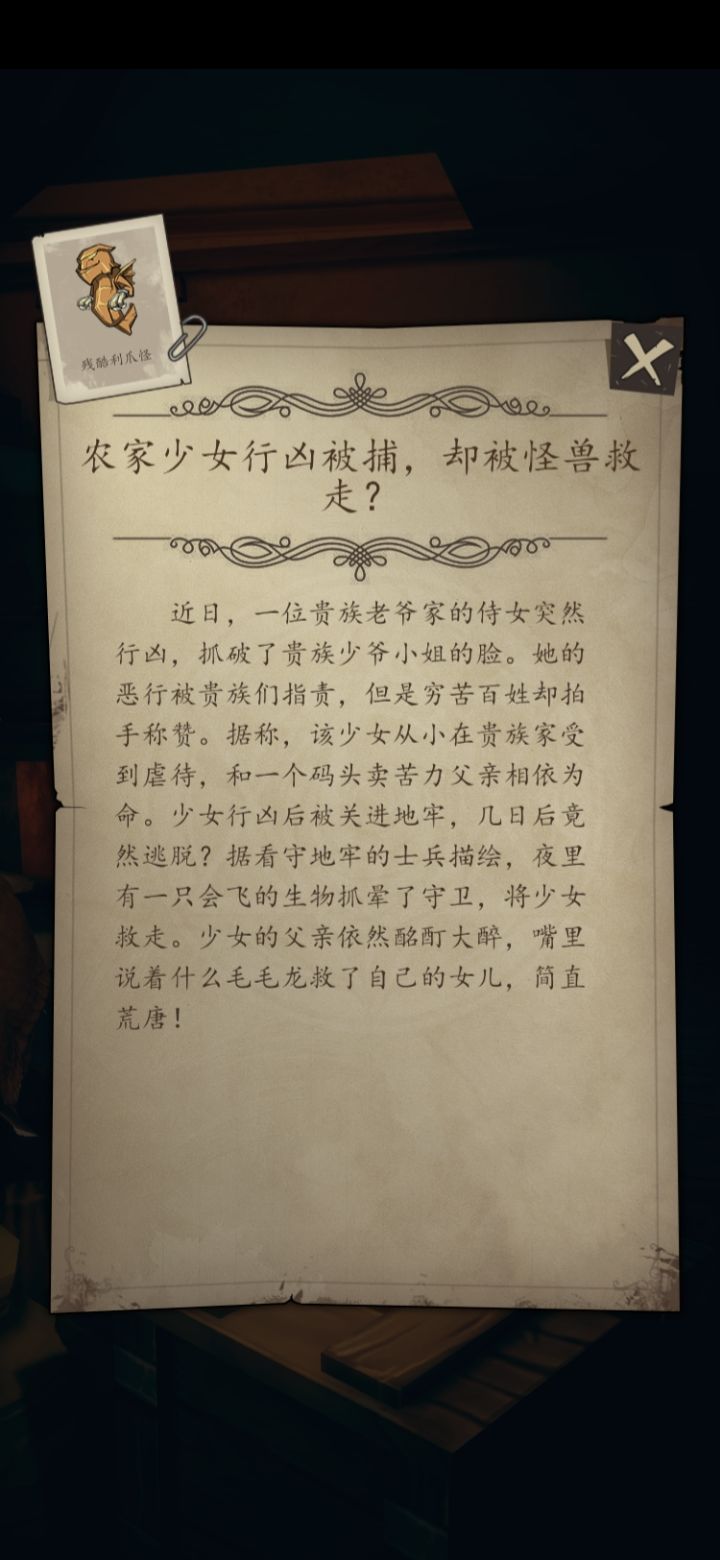 残酷利爪怪
农家少女行凶被捕，却被怪兽救
走？
近日，一位贵族老爷家的侍女突然
行凶，抓破了贵族少爷小姐的脸。她的
恶行被贵族们指责，但是穷苦百姓却拍
手称赞。据称，该少女从小在贵族家受
到虐待，和一个码头卖苦力父亲相依为
命。少女行凶后被关进地牢，几日后竟
然逃脱？据看守地牢的士兵描绘，夜里
有一只会飞的生物抓晕了守卫，将少女
救走。少女的父亲依然酩酊大醉，嘴里
说着什么毛毛龙救了自己的女儿，简直
荒唐！